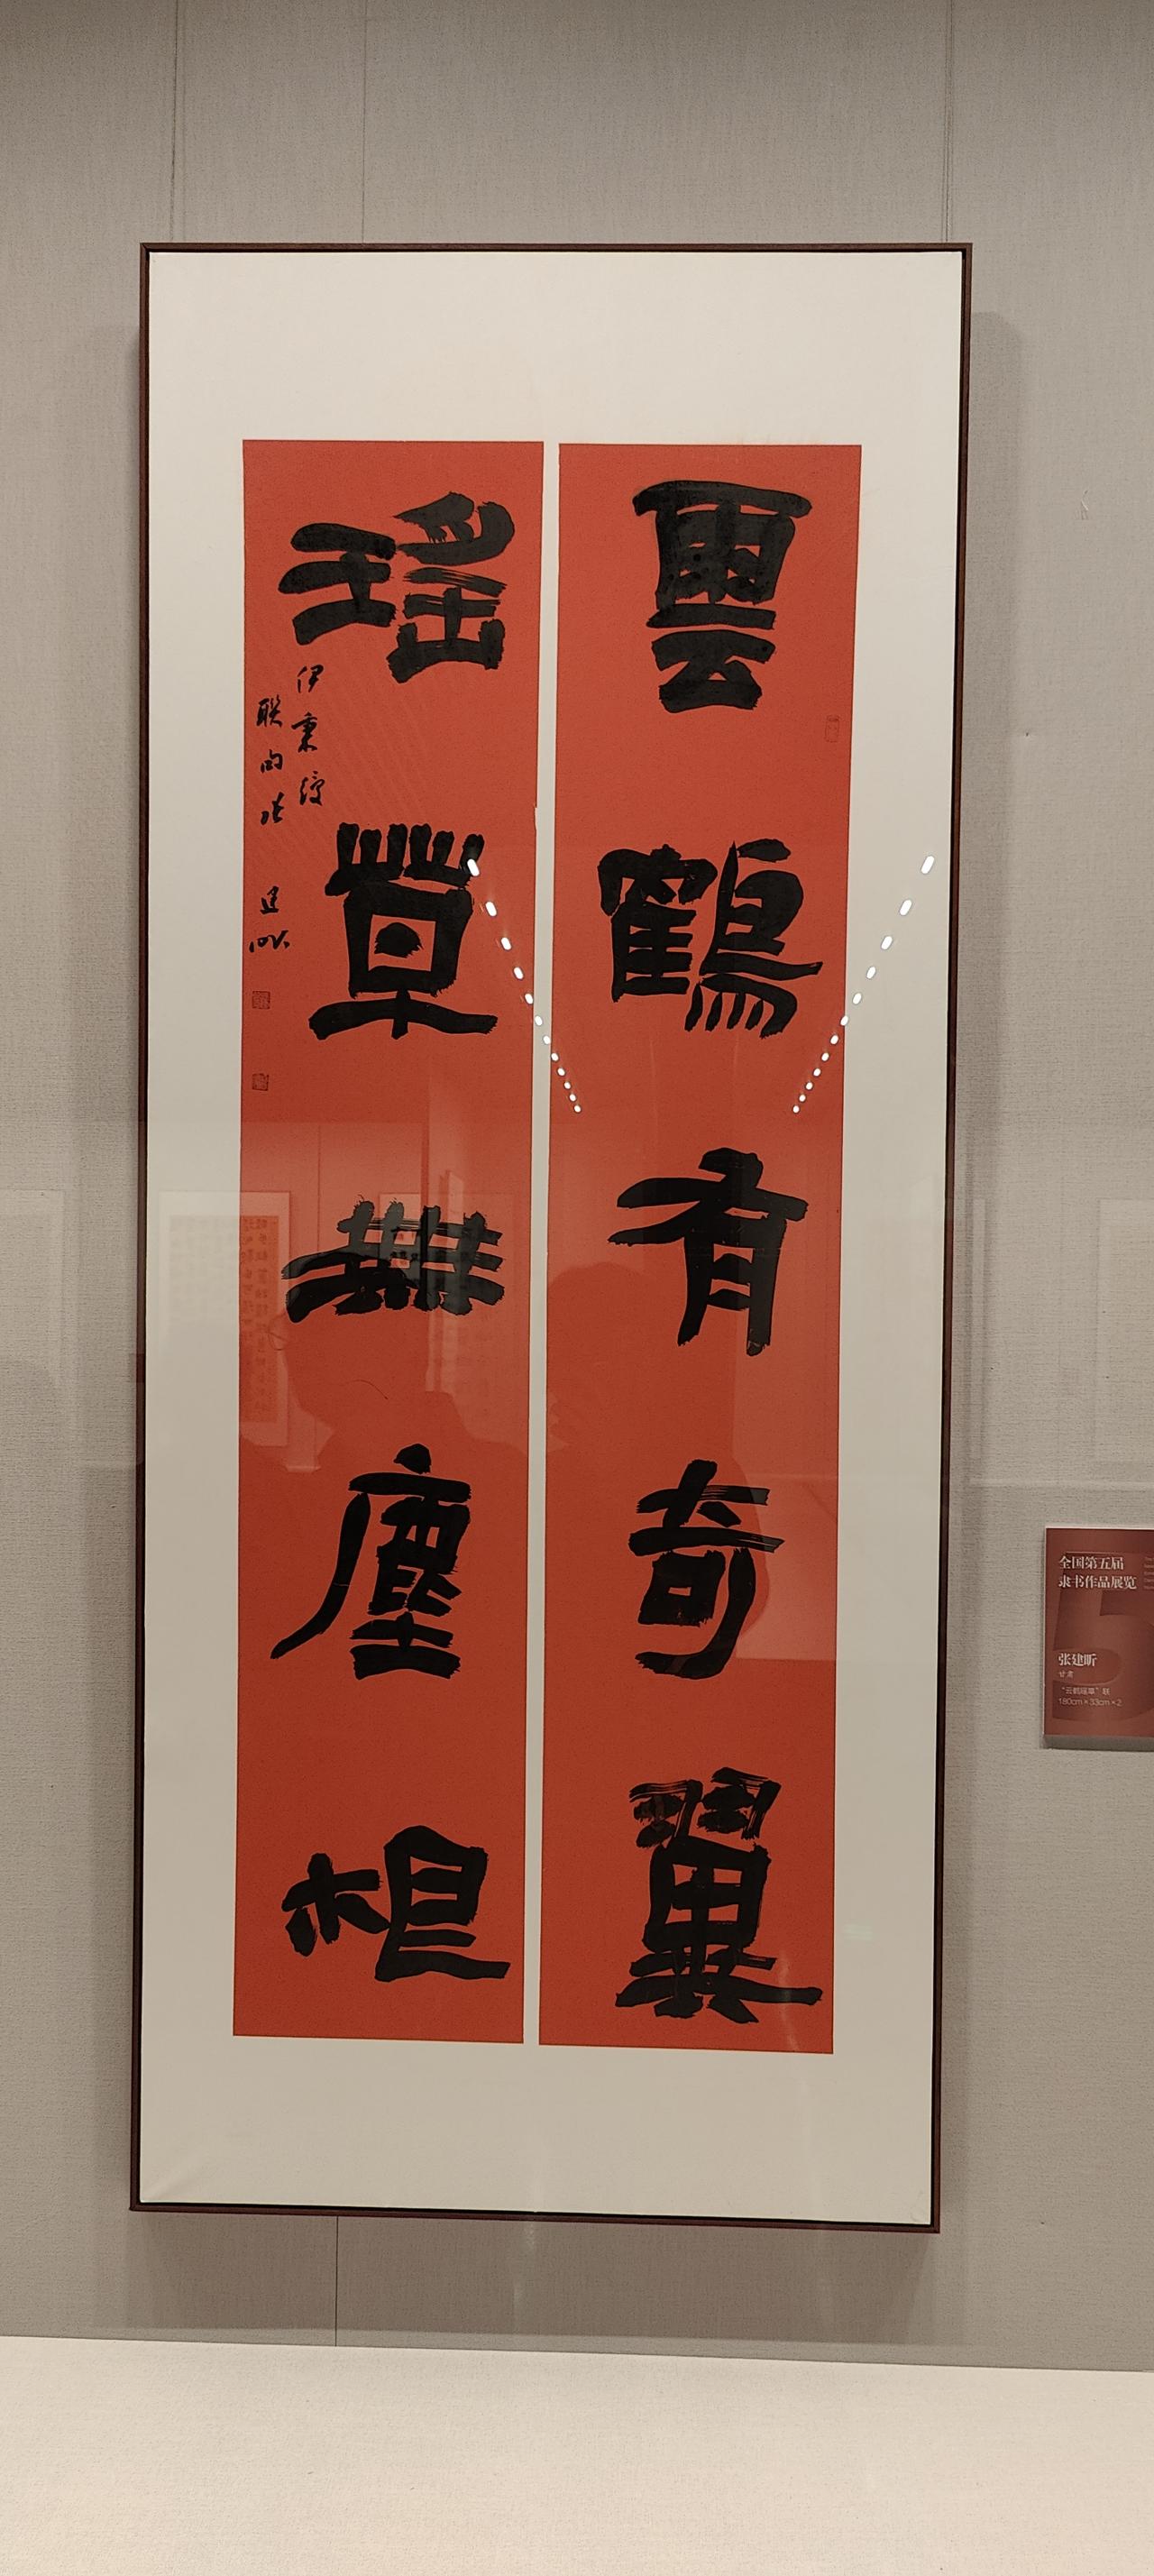 雲鶴有奇翼
瑶草無塵根
伊秉綬
聯句張建昕
全国第五届
隶书作品展览
张建昕
甘肃
“云鹤瑶草”联
180cm×33cm×2